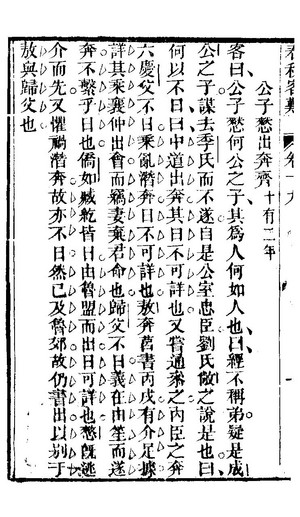 春秋客難
卷一九
公子慭出奔齊十有二年
客曰公子慭何公之子其為人何如人也曰經不稱弟疑是成
公之子謀去季氏而不遂自是公室忠臣劉氏敞之說是也曰
何以不日曰中道出奔其日不可詳也又嘗通乘之內臣之奔
六慶父不日乘亂潛奔日不可詳也敖奔莒書丙戌有介足據
詳其乘襄仲出會而竊妻棄君命也歸父不日義在由笙而遂
奔不繫乎日也僑如臧紇皆日由魯盟而出日可詳也慭旣逃
介而先又懼禍潛奔故亦不日然已及魯郊故仍書出以別于
敖與歸父也